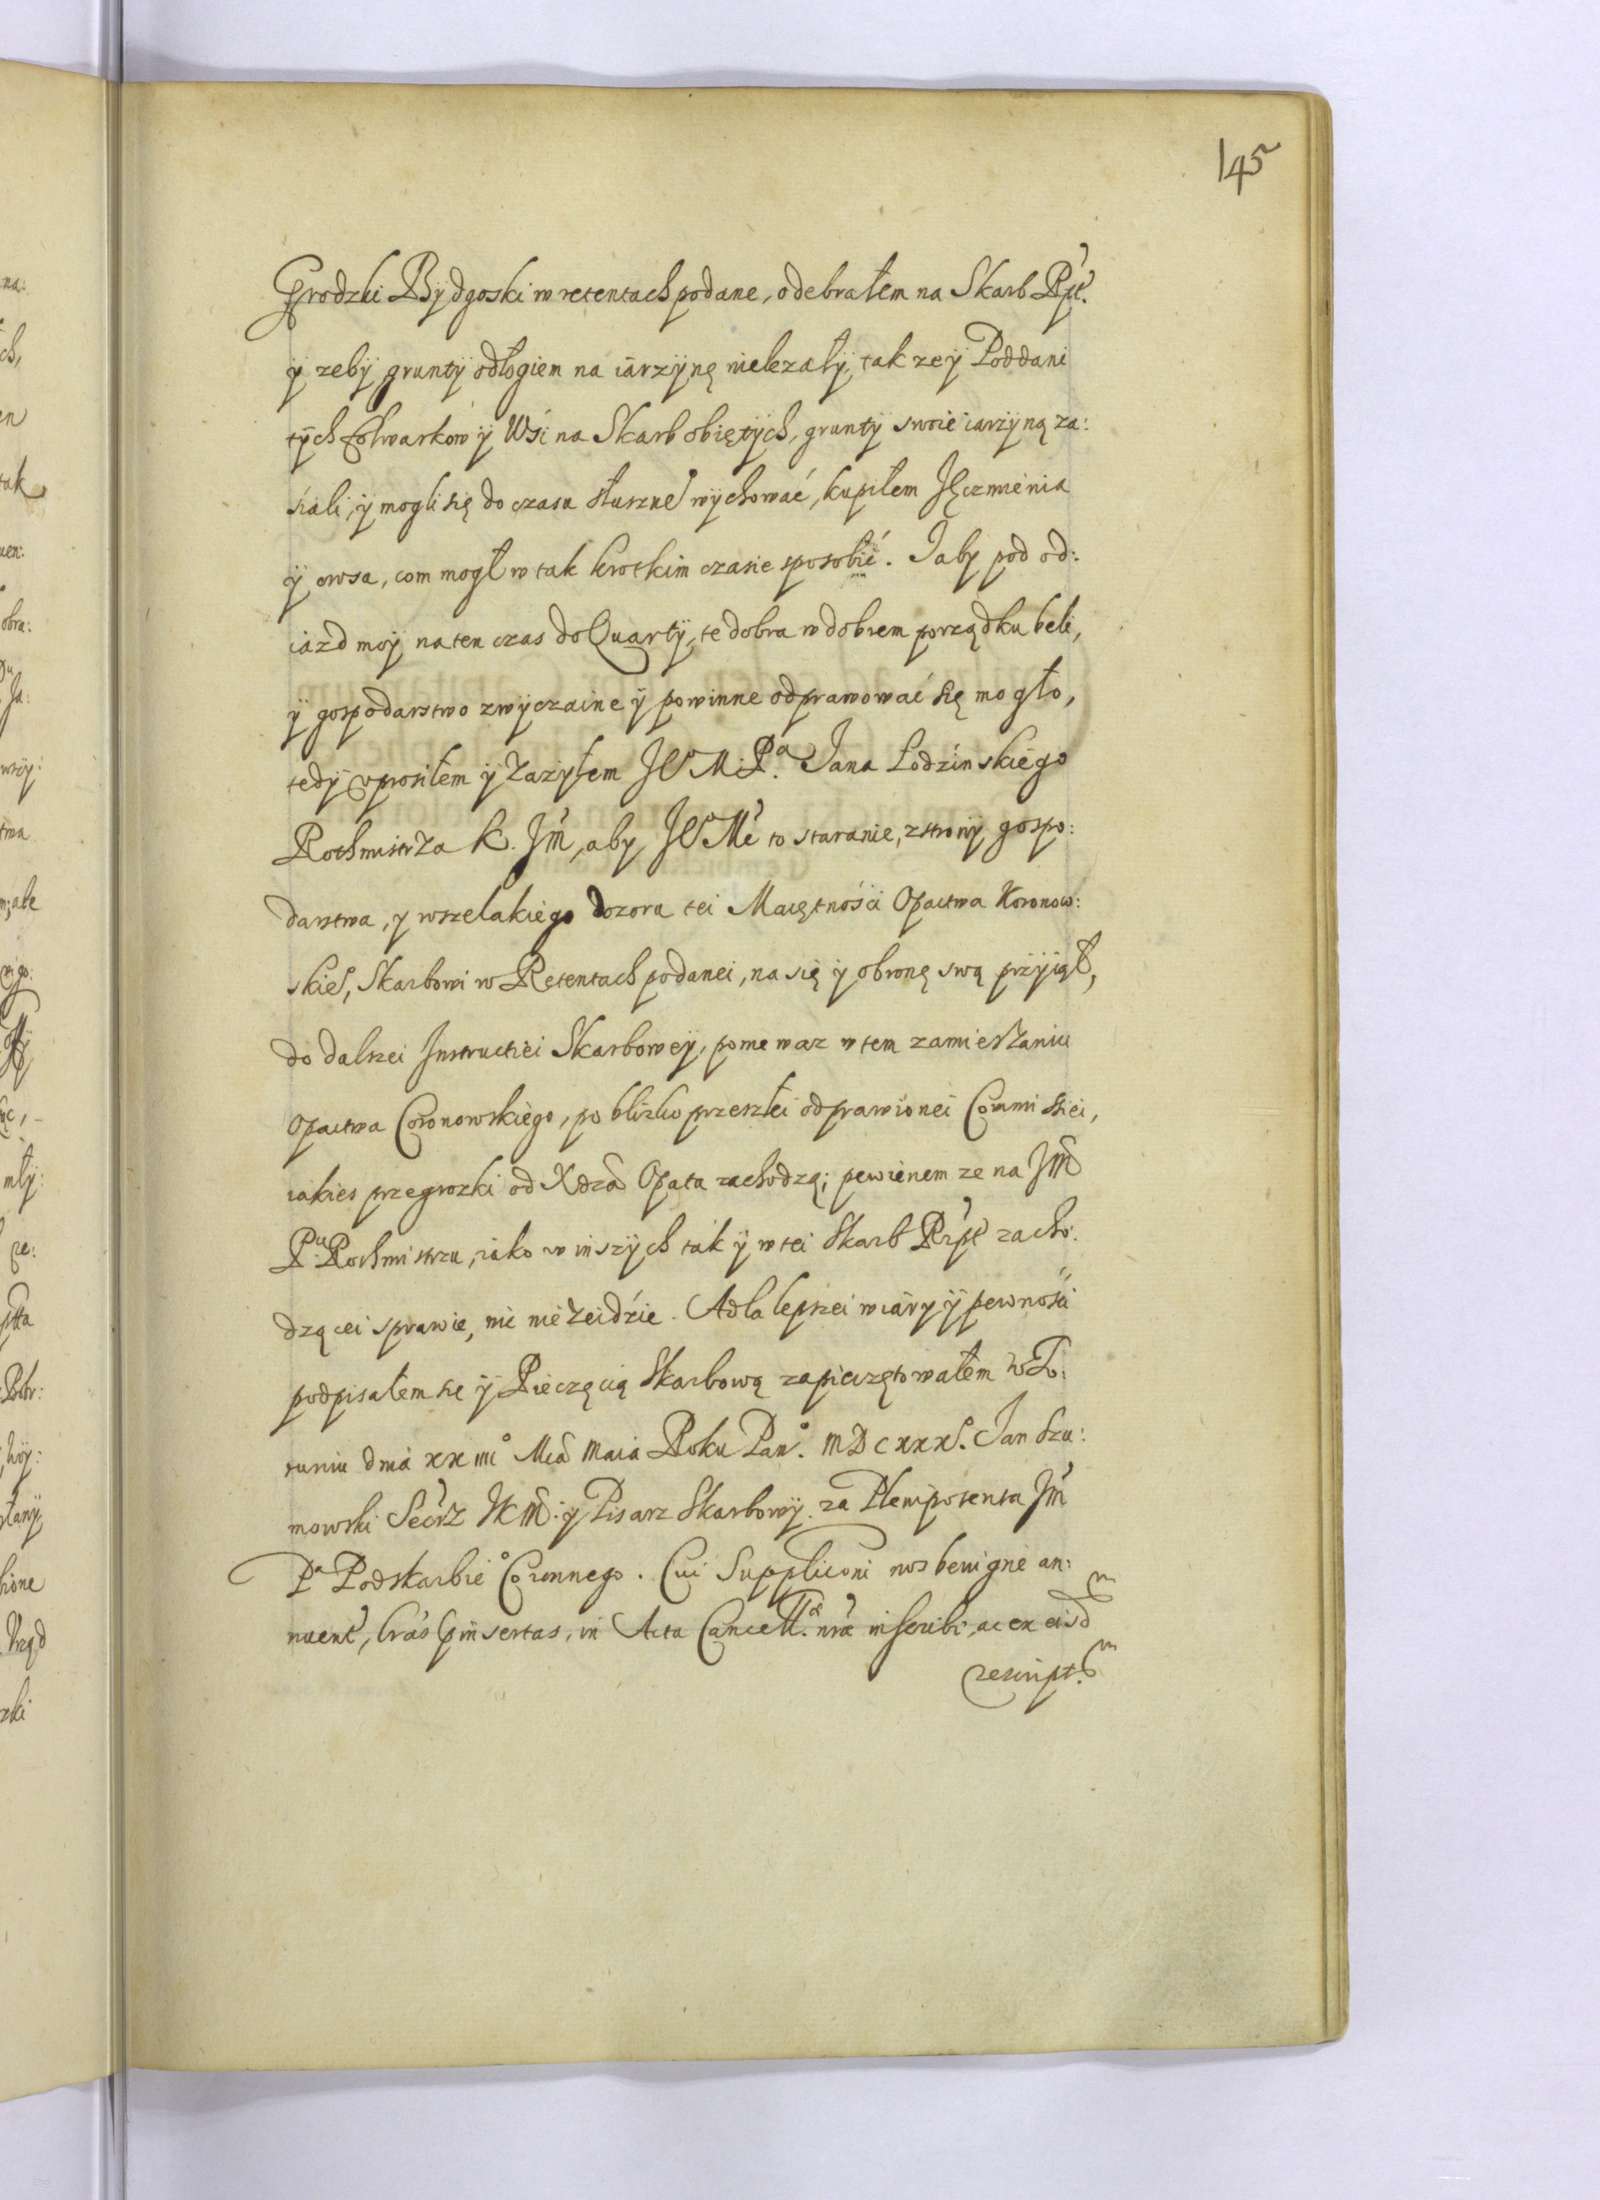 145
Grodzki Bydgoski w retentach podane, odebrałem na Skarb Rpt.
ÿ zeby grunty odłogiem na iarzÿnę nielezałÿ, tak ze ÿ Poddani
tÿch folwarkow ÿ Wsi na Skarb obiętÿch, gruntÿ swoie iarzÿną za:
siali, ÿ mogli się do czasu słuszne wÿchować, kupiłem Jęczmienia
ÿ owsa, com mogł w tak krotkim czasie sposobić. I aby pod od:
iazd moÿ na ten czas do Quartÿ, te dobra w dobrem porządku beli,
ÿ gospodarstwo zwÿczaine ÿ powinne odprawować się mogło,
tedÿ uprosiłem ÿ Zazÿłem Je° M. Pa. Jana Łodzinskiego
Rothmistrza K. Jm, aby Je° Mć to staranie, z stronÿ gospo:
darstwa, y wszelakiego dozoru tei Maiętności Opactwa Koronow:
skie°, Skarbowi w Retentach podanei, na się ÿ obronę swą przÿiął,
do dalszei Instructiei Skarbowey, poniewaz w tem zamieszaniu
Opactwa Coronowskiego, po blizko przeszłei odprawionei Commissiei,
iakies przegrozki od Xdza Opata zachodzą; pewienem ze na Jm
Pu Rothmistrzu, iako w inszÿch tak ÿ w tei Skarb Rzpt zacho:
dzącei sprawie, nic nie Zeidzie. A dla lepszei wiary ÿ pewności
podpisałem się ÿ Pieczęcią Skarbową zapieczętowałem w To:
runiu dnia xx iiii° Mca Maia Roku Pan°. MDCXXX°. Jan Szu:
mowski Secrz JKM. ÿ Pisarz Skarbowÿ za Plenipotenta Jm
Pa Podskarbie° Coronnego. Cui Supplicōni nos benigne an:
nuent, lrās pinsertas, in Acta Cancell. nrae inscribi, ac ex eisd
rescript.